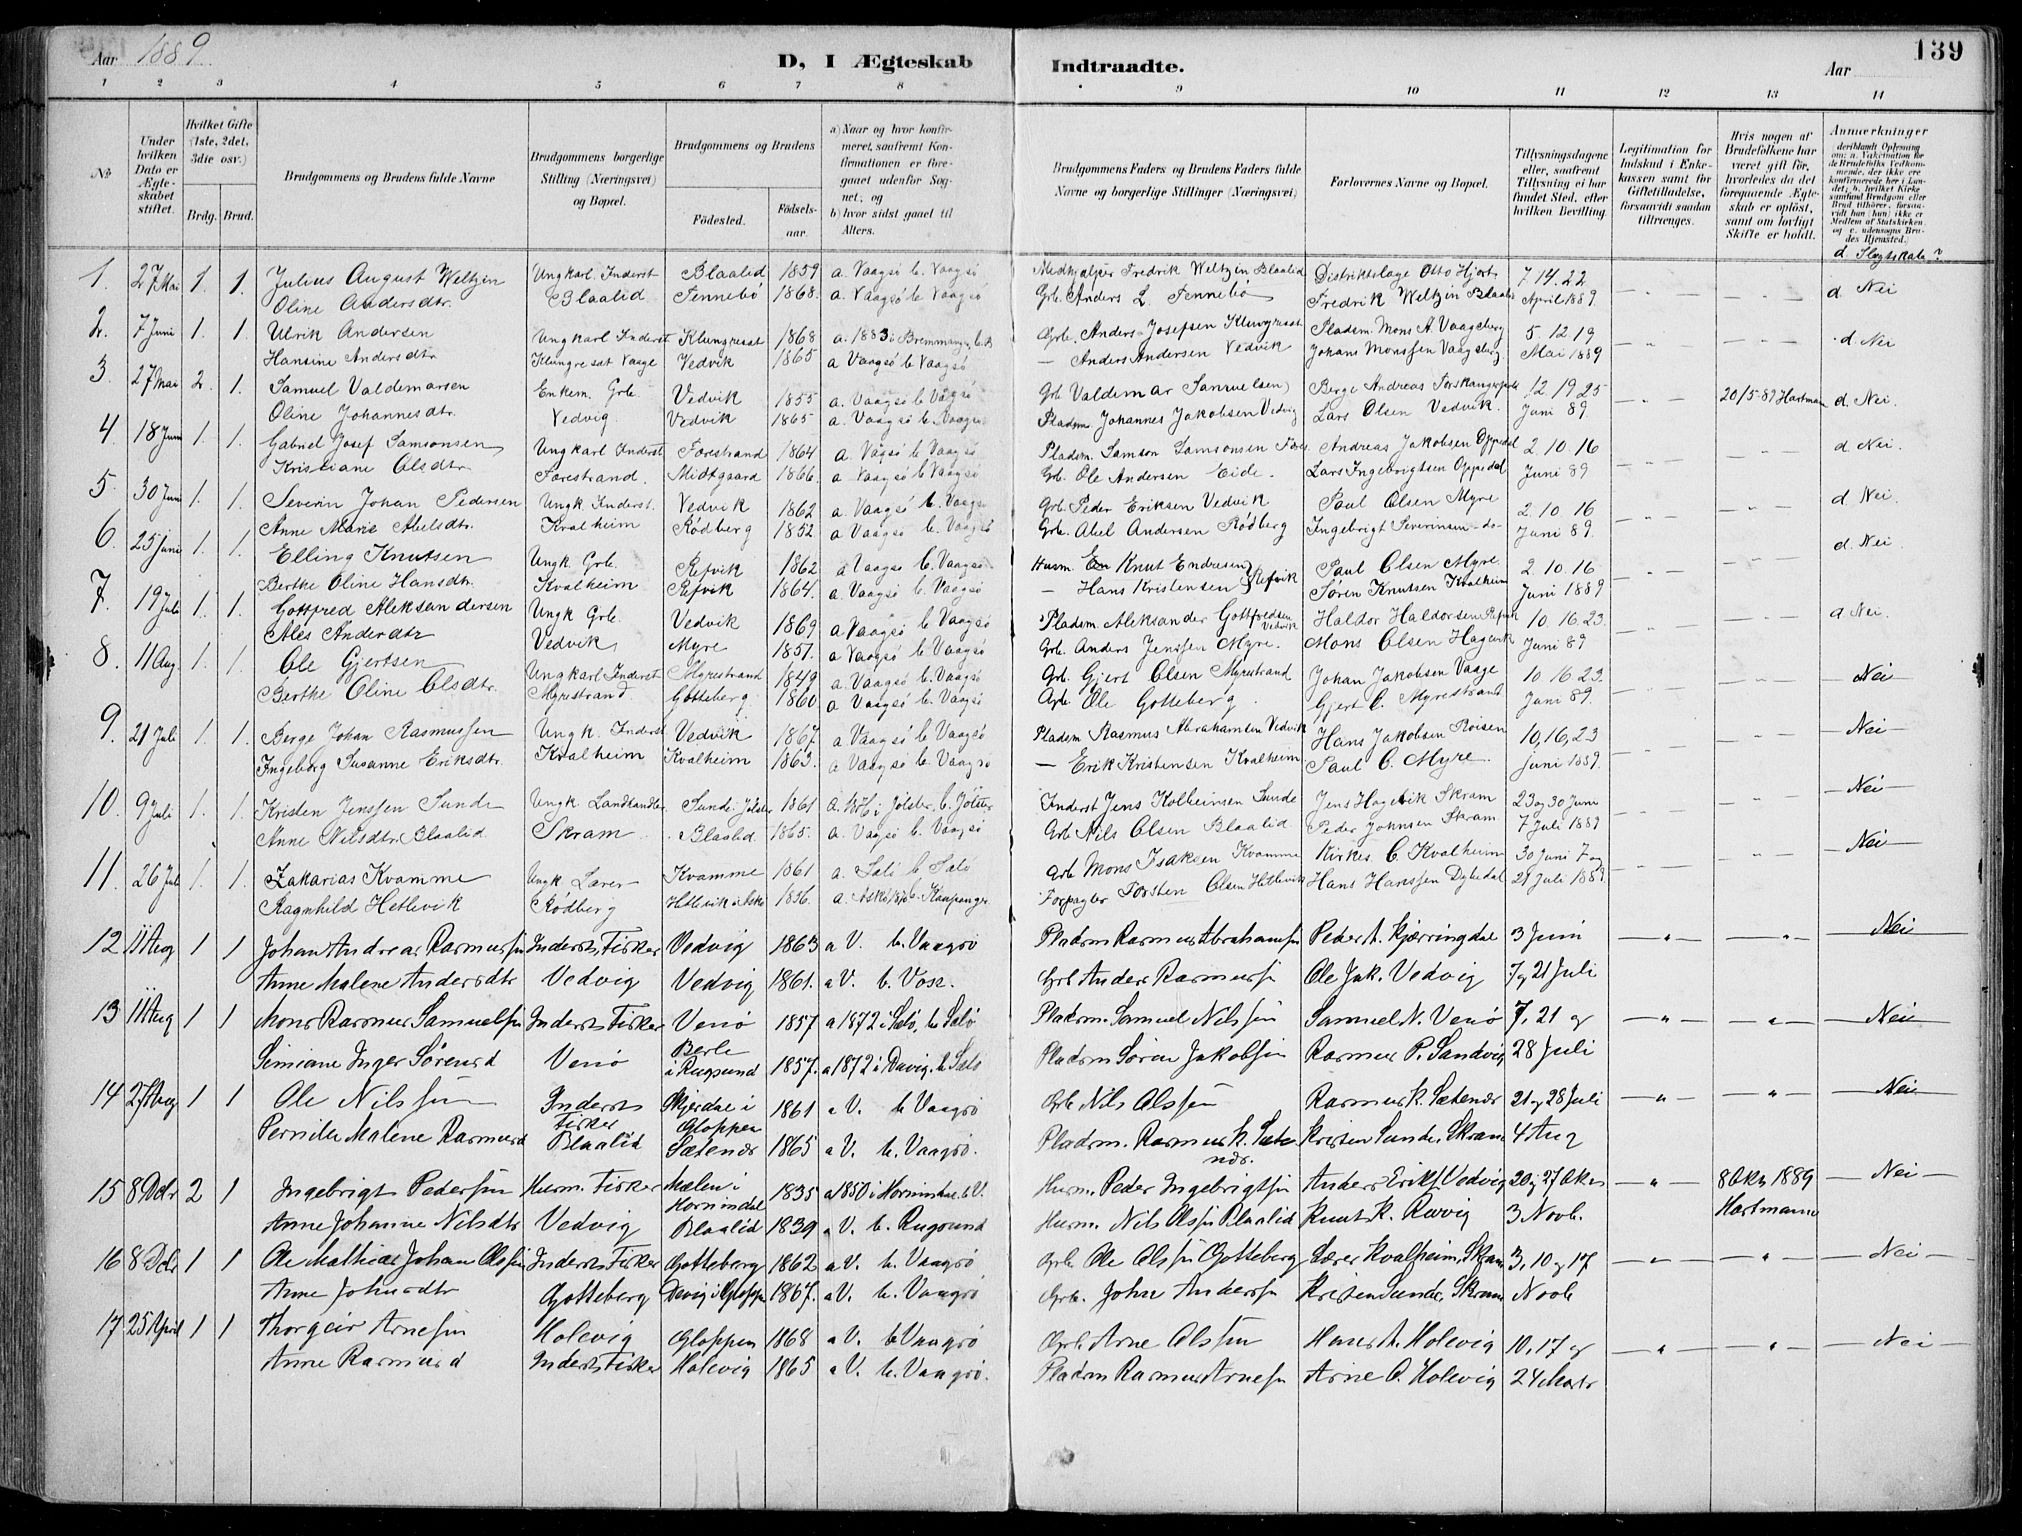 Aar 1889.
D, I Ægteskab Indtraadte.
Aar
139
1 2 3 4 5 6 7 8 9 10 11 12 13 14
№
Under hvilken Dato er Ægteskabet stiftet.
Hvilket Gifte (1ste, 2det, 3die osv.)
Brdg. Brud.
Brudgommens og Brudens fulde Navne
Brudgommens borgerlige Stilling (Næringsvei) og Bopæl.
Brudgommens og Brudens
Fødested. Fødselsaar.
a) Naar og hvor konfirmeret, saafremt Konfirmationen er foregaaet udenfor Sognet; og
b) hvor sidst gaaet til Alters.
Brudgommens Faders og Brudens Faders fulde Navne og borgerlige Stillinger (Næringsvei)
Forlovernes Navne og Bopæl.
Tillysningsdagene eller, saafremt Tillysning ei har fundet Sted, efter hvilken Bevilling.
Legitimation for Indskud i Enkekassen samt for Giftetilladelse, forsaavidt saadan tiltrænges.
Hvis nogen af Brudefolkene har været gift før, hvorledes da det foregaaende Ægteskab er opløst, samt om lovligt Skifte er holdt.
Anmærkninger
d. Slegtskab?
1. 27 Mai 1. 1. Julius August Weltzin Ungkarl. Inderst Blaalid 1859 a. Vaagsö b. Vaagsö Medhjælper Fredrik Weltzin Blaalid Distriktslæge Otto Hjort 7. 14. 22
Oline Andersdtr. Blaalid Tennebö 1868. a. Vaagsö b. Vaagsö Grb. Anders L. Tennebö Fredrik Weltzin Blaalid April 1889. d. Nei
2. 7 Juni 1. 1. Ulrik Andersen Ungkarl Inderst Klungresat 1868 a. 1883 i Bremmanger Grb. Anders Josefsen Klungresat Pladsm. Mons A. Vaagsberg 5. 12 19
Hansine Andersdtr Klungresat Vaage Vedvik 1865 a Vaagsö b Vaagsö — Anders Andersen Vedvik Johans Monssen Vaagsberg Mai 1889 d. Nei
3 27 Mai 2. 1. Samuel Valdemarsen Enkem. Grb. Vedvik 1855 a. Vaagsö b. Vaagsö Grb Valdemar Samuelsen Berge Andreas 12 19 25 20/5-89 Hartman d. Nei.
Oline Johannesdtr. Vedvig Vedvik 1865 a. Vaagsö b. Vaagsö Pladsm. Johannes Jakobsen Vedvig Lars Olsen Vedvik. Juni 89.
4. 18 Juni 1. 1. Gabriel Josef Samsonsen Ungkarl Inderst Forestrand 1864 a. Vagsö b Vaagsö Pladsm. Samson Samsonsen Andreas Jakobsen Oppedal 2. 10. 16 d Nei.
Kristiane Olsdtr Forestrand. Midtgaard 1866. a Vaagsö b Vaagsö Grb. Ole Andersen Eide. Lars Ingebrigtsen Oppedal Juni 89
5. 30 Juni 1. 1. Severin Johan Pedersen Ungk Inderst. Vedvik 1862 a. Vaagsö b. Vaagsö Grb. Peder Eriksen Vedvik Paul Olsen Myre 2. 10. 16 d Nei.
Anne Marie Abelsdtr. Kvalheim Rödberg 1852 a Vaagsö b. Vaagsö Grb. Abel Andersen Rødberg Ingebrigt Severinsen -do- Juni 89.
6. 25 Juni 1. 1. Elling Knutsen Ungk. Grb. Refvik 1862 a Vaagsö b. Vaagsö Husm. Knut Endresen Paul Olsen Myre. 2. 10. 16 d. Nei.
Berthe Oline Hansdtr. Kvalheim Refvik 1864. a. Vaagsö b. Vaagsö — Hans Kristensen Refvik Sören Knutsen Kvalheim Juni 1889
7. 19 Juli 1. 1. Gottfred Aleksandersen Ungk Grb. Vedvik 1869 a. Vaagsö b Vaagsö Pladsm. Aleksander Gottfredsen Vedvik Haldor Haldorsen Refvik 10. 16. 23. d Nei.
Ales Andersdtr Vedvik Myre 1857. a Vaagsö b. Vaagsö Grb. Anders Jenssen Myre. Mons Olsen Hagevik Juni 89
8. 11 Aug. 1. 1. Ole Gjertsen Ungkarl Inderst Myrestrand 1849 a. Vaagsö b. Vaagsö Grb. Gjert Olsen Myrestrand Johan Jakobsen Vaage 10. 16 23. Nei
Berthe Oline Olsdtr. Myrestrand Gotteberg 1860 a Vaagsö b. Vaagsö Grb Ole Gotteberg Gjert O. Myrestrand Juni 89.
9. 21 Juli 1. 1. Berge Johan Rasmussen Ungk. Inderst Vedvik 1867. a Vaagsö b. Vaagsö Pladsm Rasmus Abrahamsen Vedvik Hans Jakobsen Roisen 10, 16, 23 Nei
Ingeborg Susanne Eriksdtr. Kvalheim Kvalheim 1863. a Vaagsö b. Vaagsö — Erik Kristensen Kvalheim Paul O. Myre. juni 1889.
10. 9 Juli 1. 1. Kristen Jenssen Sunde Ungk. Landhandler. Sunde i Jölster 1861 a. i Jölster, b. Jölster Inderst Jens Kolbeinsen Sunde Jens Hagevik Skram 23 og 30 Juni Nei
Anne Nilsdtr. Blaalid Skram Blaalid 1865. a. Vaagsö b. Vaagsö Grb Nils Olsen Blaalid Peder Johnsen Skram 7 Juli 1889
11. 26 Juli 1. 1. Zakarias Kvamme Ungk. Lærer Kvamme 1861 a. Selö b. Selö Grb Mons Isaksen Kvamme Kirkes. O. Kvalheim 30 Juni 7 og Nei
Ragnhild Hetlevik Rødberg Hetlevik i Askö 1856. a. Askö b. Kaupanger Forpagter Torsten Olsen Hetlevik Hans Hanssen Dybedal 21 Juli 1889.
12 11 Aug 1 1 Johan Andreas Rasmussen Inderst, Fisker Vedvig 1863 a V. b. Vaagsö Pladsm Rasmus Abrahamsen Peder A. Kjærringdal 3 Juni Nei
Anne Malene Andersdtr Vedvig Vedvig 1861. a V. b. Vosz. Grb Anders Rasmussen Ole Jak. Vedvig 7 og 21 Juli
13 11 Aug 1 1 Mons Rasmus Samuelsen Inderst Fisker Vemö 1857 a 1872 i Selö, b. Selö Pladsm. Samuel Nilssen Samuel N. Vemö 7, 21 og Nei
Simiane Inger Sörensd Vemö Berle i Rugsund 1857. a 1872 i Davig. b. Selö Pladsm Sören Jakobsen Rasmus P. Sandvig 28 Juli
14 27 Aug 1 1 Ole Nilssen Inderst Fisker Skjerdal i Gloppen 1861 a V. b Vaagsö Grb Nils Olssen Rasmus K. Sætenær 21 og 28 Juli Nei
Pernille Malene Rasmusd Blaalid Sætenær 1865 a V. b. Vaagsö. Pladsm. Rasmus K. Sætenær. Kristen Sunde, Skram 4 Aug
15 8 Dcbr 2 1 Ingebrigt Pedersen Husm. Fisker Mælen i Hornindal 1835 a 1850 i Hornindal b V. Husm. Peder Ingebrigtsen Anders Eriks. Vedvig 20 og 27 Okt 8 Okt 1889 Hartmann Nei
Anne Johanne Nilsdtr Vedvig Blaalid 1839 a V. b. Rugsund Husm. Nils Olssen Blaalid Knut K. Revvig 3 Novb.
16 8 Dcbr 1 1 Ole Mathias Johan Olssen Inderst Fisker Gotteberg 1862 a V. b. Vaagsö Grb. Ole Olssen Gotteberg Lærer Kvalheim, Skram 3, 10 og 17 Nei
Anne Johnsdtr Gotteberg Devig i Gloppen 1867. a V. b. Vaagsö Grb. John Anderssen Kristen Sunde, Skram Novb
17 25 April 1 1 Thorgeir Arnesen Holevig Gloppen 1868 a V. b Vaagsö Grb. Arne Olssen Hans A. Holevig 10, 17 og Nei
Anne Rasmusd Inderst Fisker Holevig 1865 a V. b. Vaagsö. Pladsm Rasmus Arnesen Arne O. Holevig 24 Marts